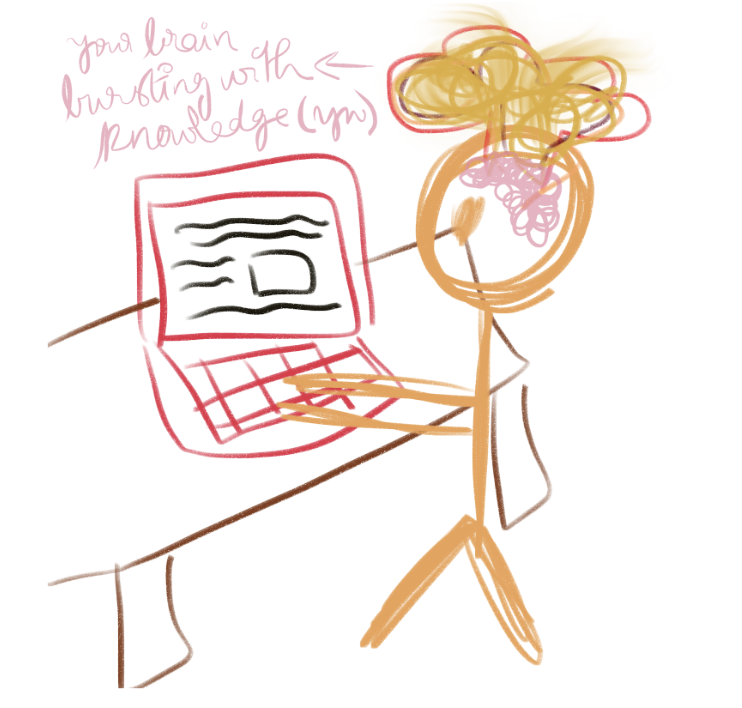 your brain
bursting with
knowledge (yw)